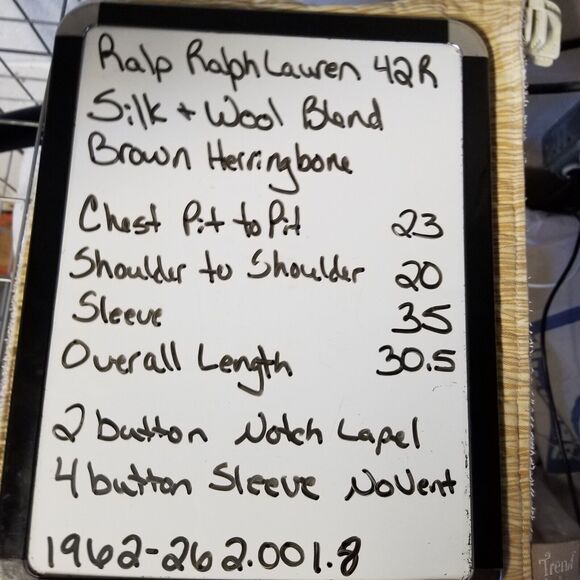 Ralp Ralph Lauren 42R
Silk + Wool Blend
Brown Herringbone
Chest Pit to Pit 23
Shoulder to Shoulder 20
Sleeve 35
Overall Length 30.5
2 button Notch Lapel
4 button Sleeve No Vent
1962-262.001.8
Trend